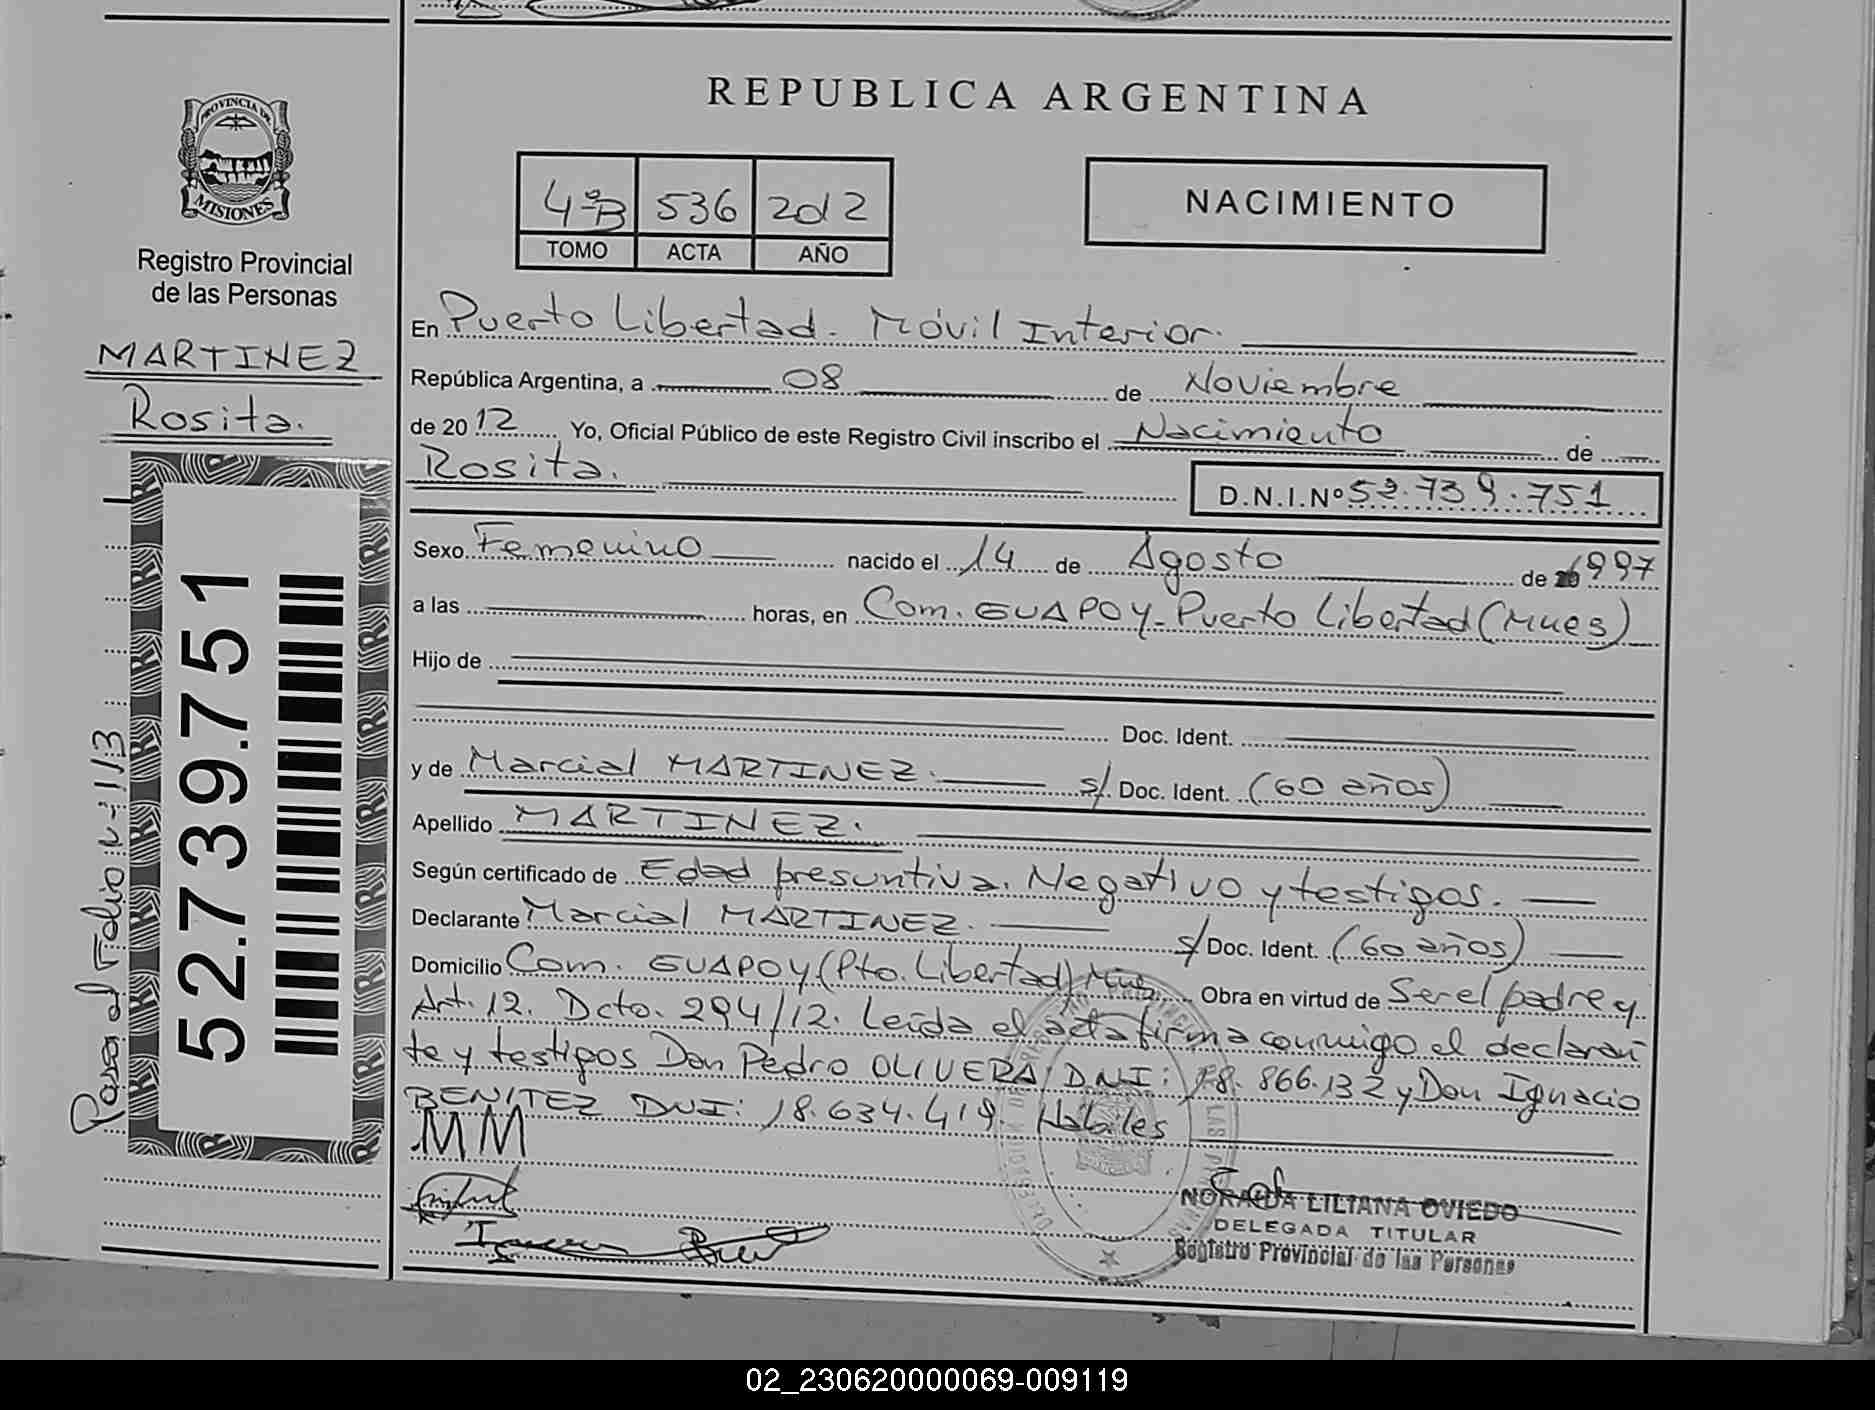 REPUBLICA ARGENTINA
PROVINCIA DE
MISIONES
Registro Provincial
de las Personas
MARTINEZ
Rosita.
52.739.751
Pasa al Folio: Nº 113
4ºB 536 2012
TOMO ACTA AÑO
NACIMIENTO
En Puerto Libertad. Móvil Interior.
República Argentina, a 08 de Noviembre
de 2012 Yo, Oficial Público de este Registro Civil inscribo el Nacimiento de
Rosita.
D.N.I.Nº 52.739.751
Sexo Femenino nacido el 14 de Agosto de 1997
a las horas, en Com. GUAPOY-Puerto Libertad (Mnes)
Hijo de
Doc. Ident.
y de Marcial MARTINEZ. s/ Doc. Ident. (60 años)
Apellido MARTINEZ.
Según certificado de Edad presuntiva. Negativo y testigos.
Declarante Marcial MARTINEZ. s/ Doc. Ident. (60 años)
Domicilio Com. GUAPOY (Pto. Libertad) Mnes Obra en virtud de Ser el padre y
Art. 12. Dcto. 294/12. Leída el acta firma conmigo el declaran
te y testigos Don Pedro OLIVERA DNI: 18.866.132 y Don Ignacio
BENITEZ DNI: 18.634.419. Hábiles
MM
NORAIDA LILIANA OVIEDO
DELEGADA TITULAR
Registro Provincial de las Personas
02_230620000069-009119